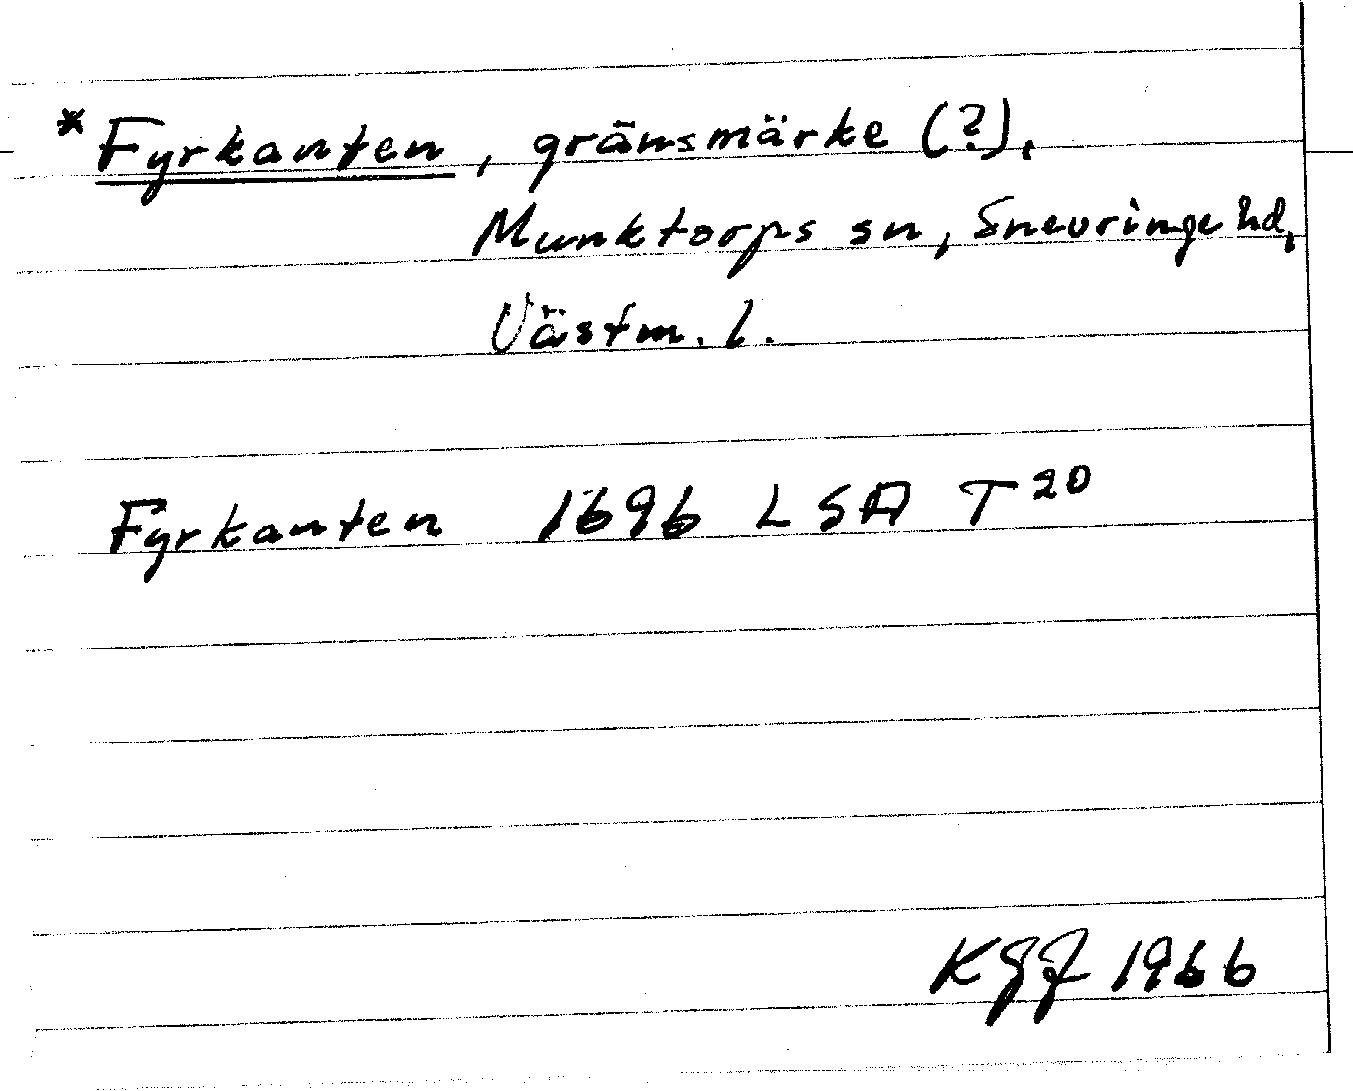 * Fyrkanten, gränsmärke (?),
Munktorps sn, Snevringe hd,
Västm. l.
Fyrkanten 1696 LSA T 20
KGJ 1966